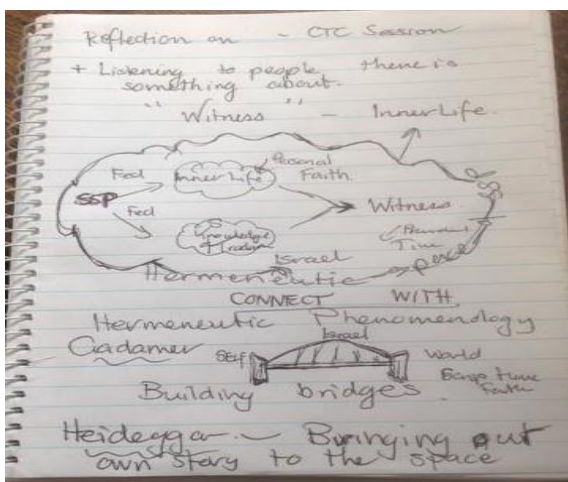 Reflection on - CTC Session
+ Listening to people there is
something about.
"Witness" - Inner Life.
Feed Inner Life Personal
Faith
SSP
Witness
Feed
Knowledge
of Tradition
Time
Israel
Hermeneutic space
CONNECT WITH
Hermeneutic Phenomenology
Gadamer
Israel
Self World
Faith
Building bridges.
Heideggar - Bringing out
own story to the space